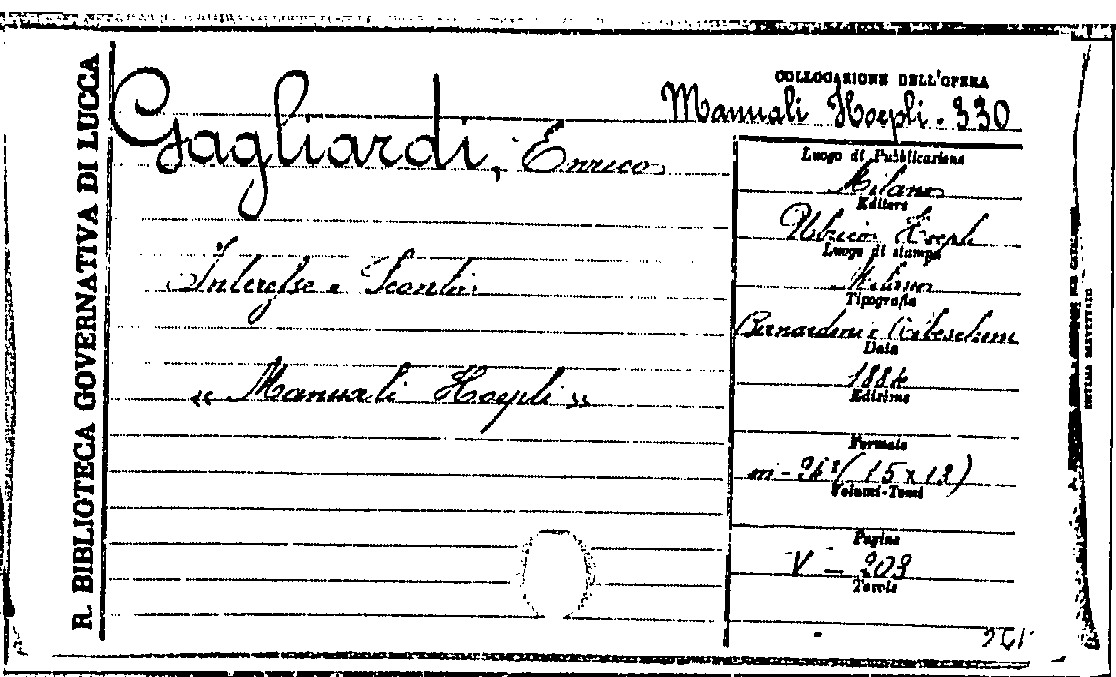 R. BIBLIOTECA GOVERNATIVA DI LUCCA
COLLOCAZIONE DELL'OPERA
Manuali Hoepli. 330
Gagliardi, Enrico
Interesse e Sconto
« Manuali Hoepli »
Luogo di Pubblicazione
Milano
Editore
Ulrico Hoepli
Luogo di stampa
Milano
Tipografia
Bernardoni e
Data
188
Edizione
Formato
in-24° (15 x
Volumi-Tomi
Pagine
V - 203
Tavole